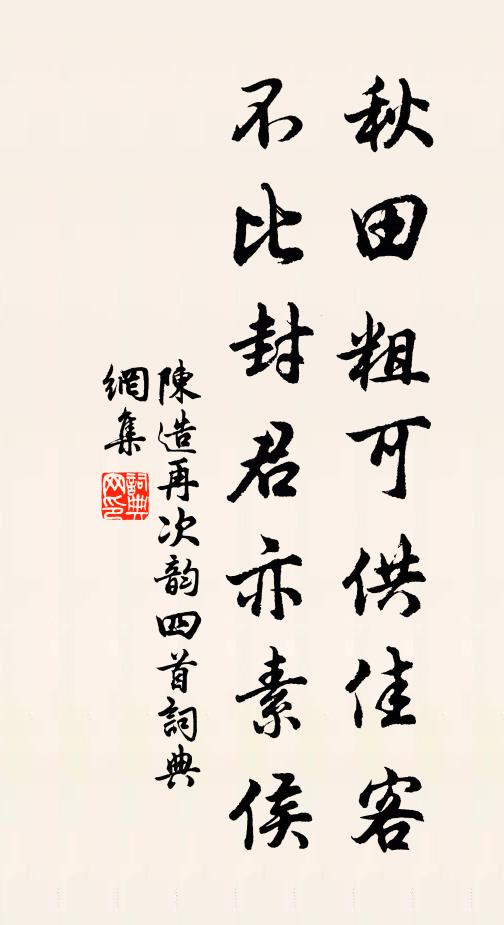 秋田粗可供佳客
不比封君亦素侯
陳造再次韵四首詞典
網集
詞典
网印